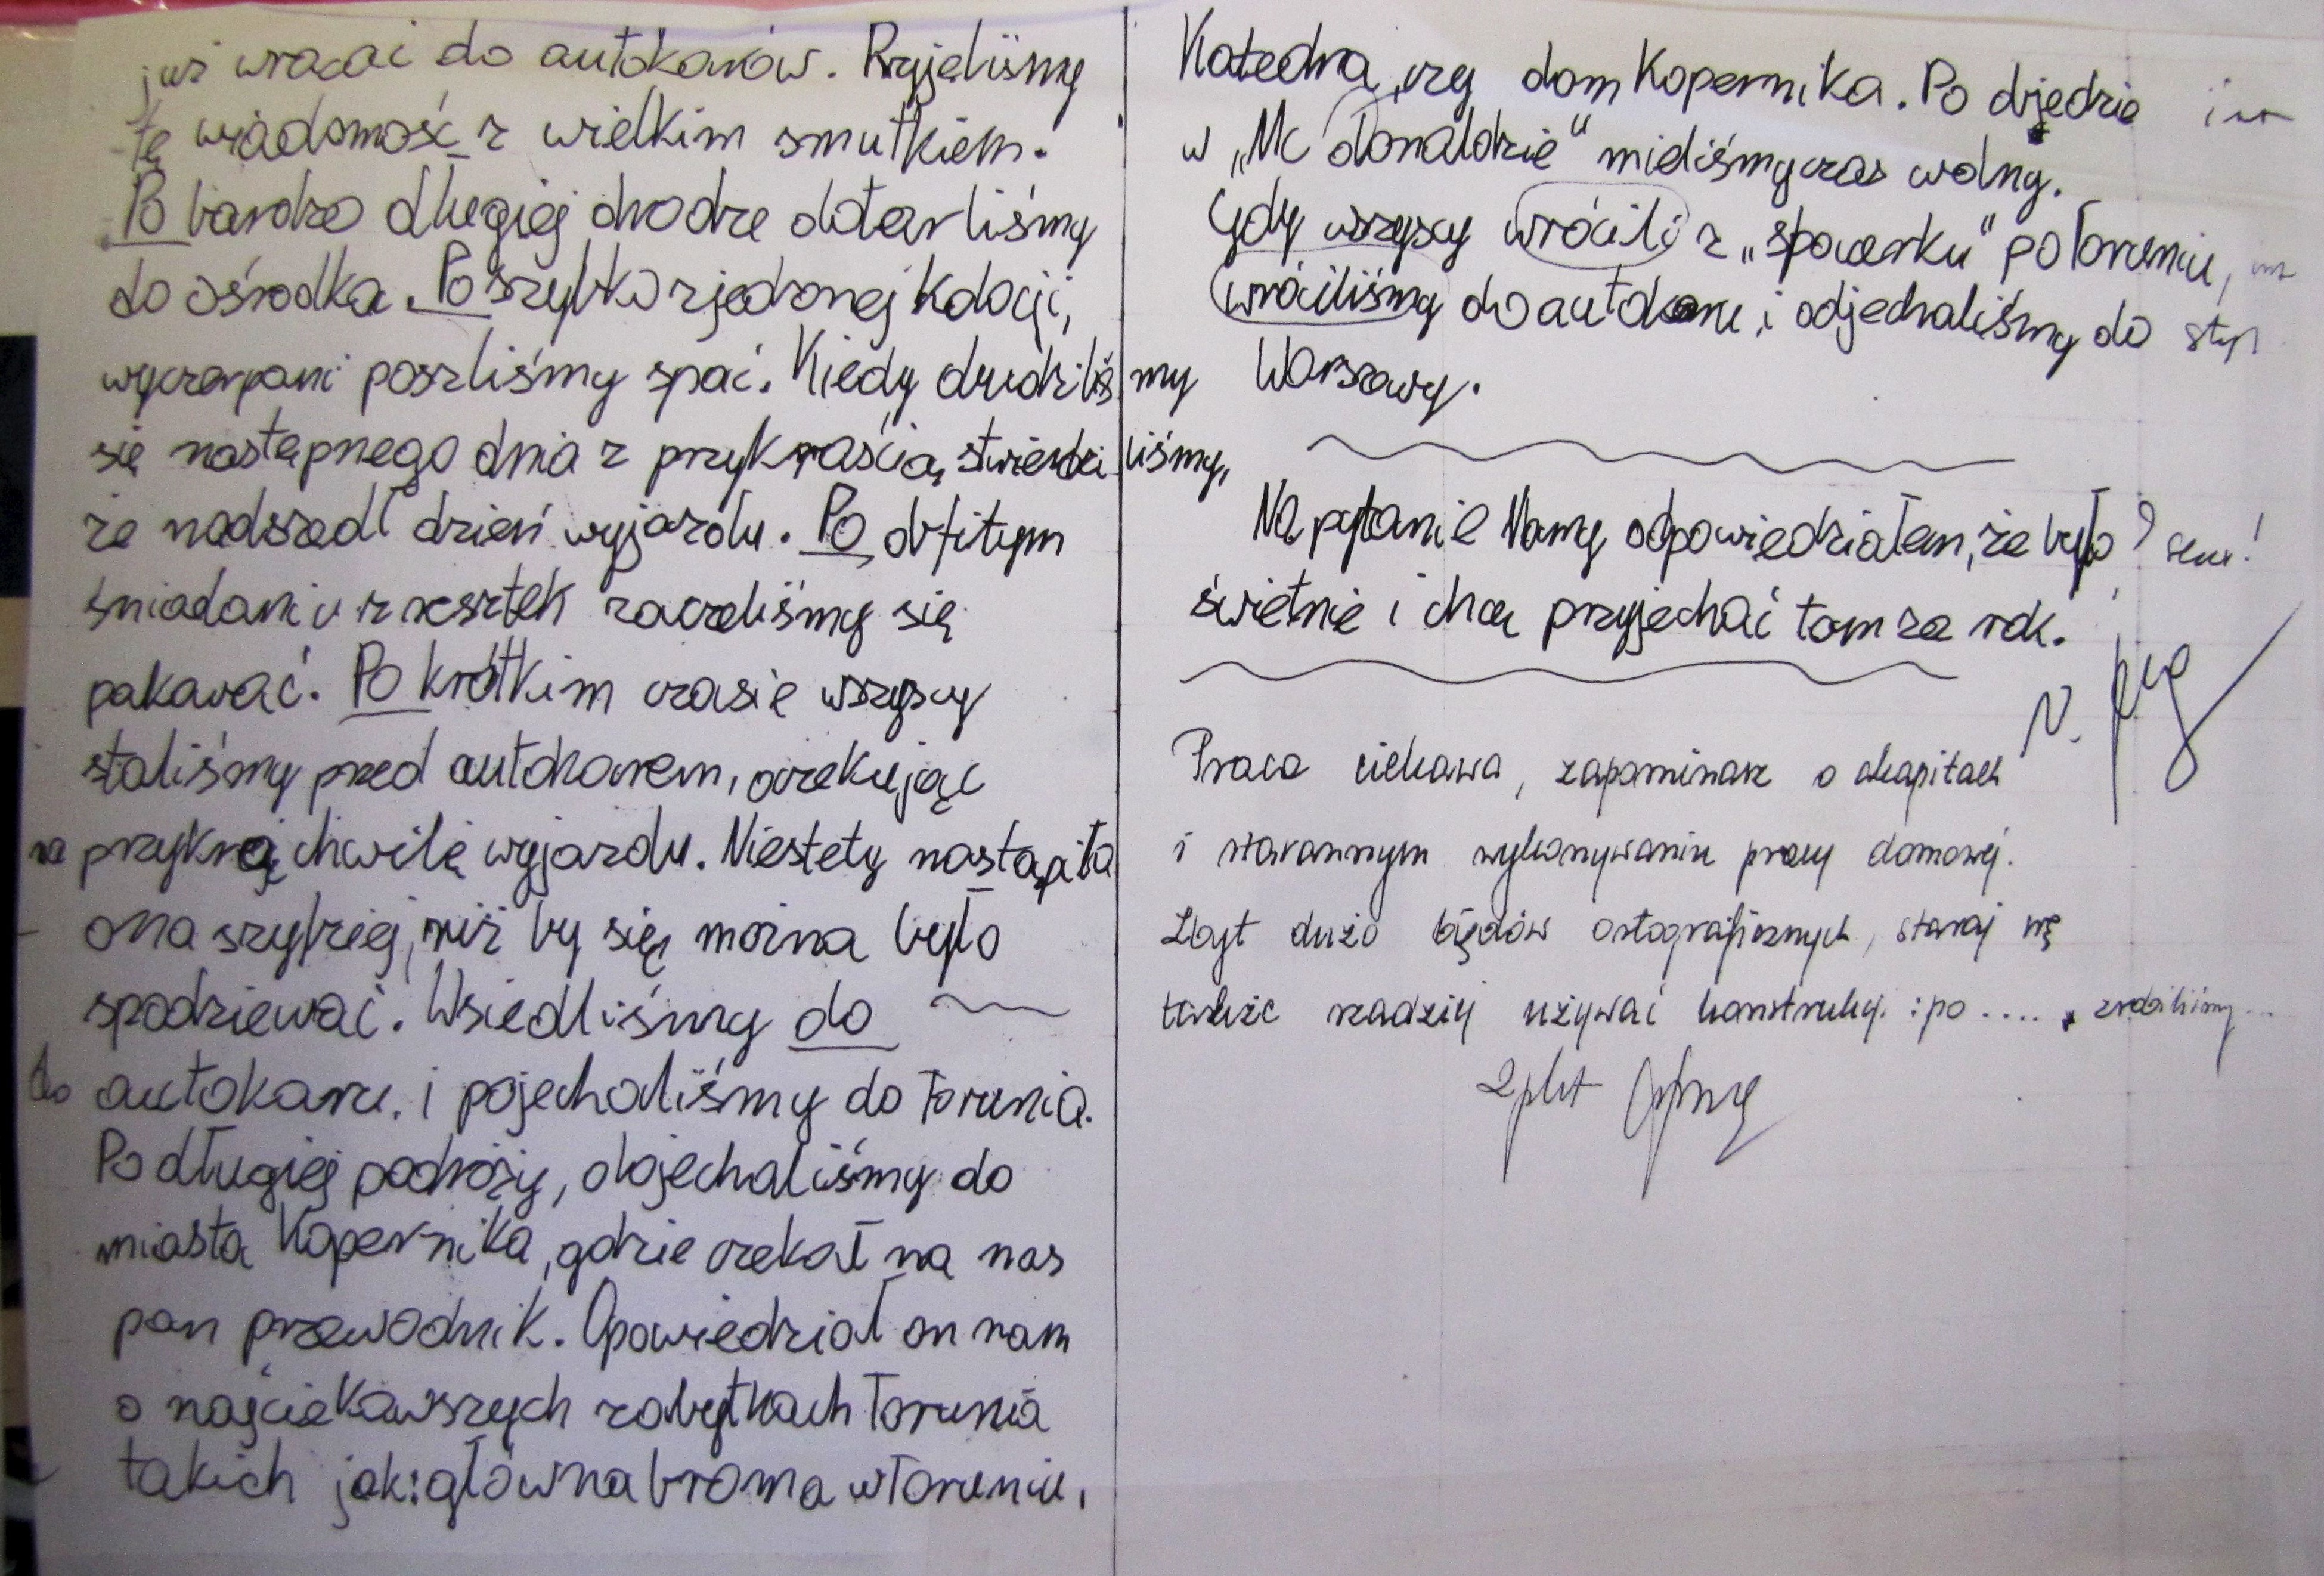 już wracać do autokarów. Przyjeliśmy
tę wiadomość z wielkim smutkiem.
Po bardzo długiej drodze dotarliśmy
do ośrodka. Po szybko zjedzonej kolacji,
wyczerpani poszliśmy spać. Kiedy obudziliśmy
się następnego dnia z przykrością stwierdziliśmy,
że nadszedł dzień wyjazdu. Po obfitym
śniadaniu z resztek zaczeliśmy się
pakować. Po krótkim czasie wszyscy
staliśmy przed autokarem, oczekując
na przykrą chwilę wyjazdu. Niestety nastąpiła
ona szybciej, niż by się można było
spodziewać. Wsiedliśmy do
do autokaru. i pojechaliśmy do Torunia.
Po długiej podróży, dojechaliśmy do
miasta Kopernika, gdzie czekał na nas
pan przewodnik. Opowiedział on nam
o najciekawszych zabytkach Torunia
takich jak: główna brama w Toruniu,
Katedra, czy dom Kopernika. Po objedzie
w „Mc donaldzie" mieliśmy czas wolny.
Gdy wszyscy wrócili z „spacerku" po Toruniu,
wróciliśmy do autokaru, i odjechaliśmy do styl
Warszawy.
Na pytanie Mamy odpowiedziałem, że było ?
świetnie i chcę przyjechać tam za rok.
Praca ciekawa, zapominasz o akapitach
i starannym wykonywaniu pracy domowej.
Zbyt dużo błędów ortograficznych, staraj się
także rzadziej używać konstrukcji: po .... zrobiliśmy...